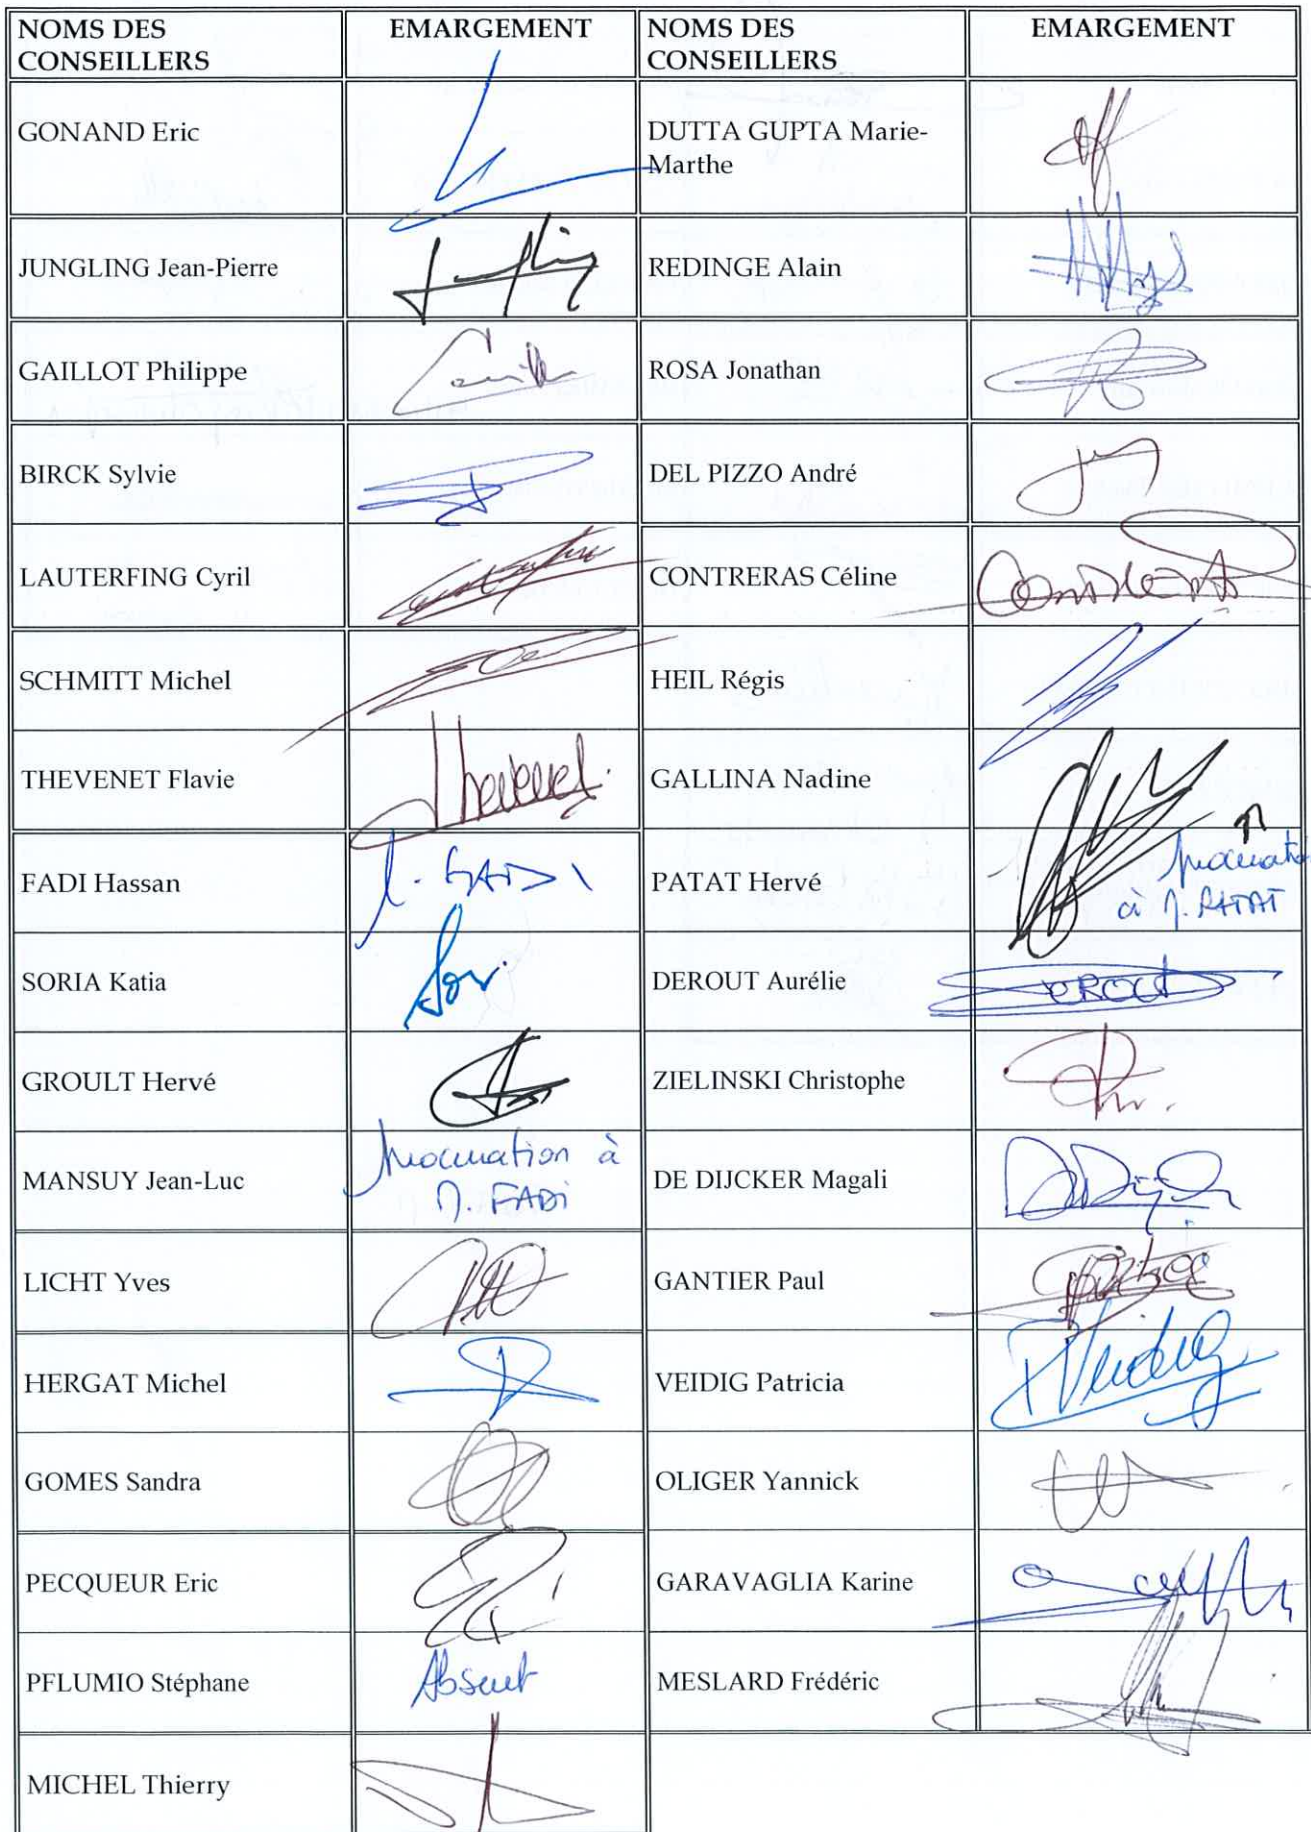 NOMS DES CONSEILLERS EMARGEMENT NOMS DES CONSEILLERS EMARGEMENT
GONAND Eric DUTTA GUPTA Marie-Marthe
JUNGLING Jean-Pierre REDINGE Alain
GAILLOT Philippe ROSA Jonathan
BIRCK Sylvie DEL PIZZO André
LAUTERFING Cyril CONTRERAS Céline
SCHMITT Michel HEIL Régis
THEVENET Flavie Thevenet GALLINA Nadine
FADI Hassan FADI PATAT Hervé procuration à M. PATAT
SORIA Katia DEROUT Aurélie DEROUT
GROULT Hervé ZIELINSKI Christophe
MANSUY Jean-Luc Procuration à M. FADI DE DIJCKER Magali
LICHT Yves GANTIER Paul
HERGAT Michel VEIDIG Patricia Veidig
GOMES Sandra OLIGER Yannick
PECQUEUR Eric GARAVAGLIA Karine
PFLUMIO Stéphane Absent MESLARD Frédéric
MICHEL Thierry